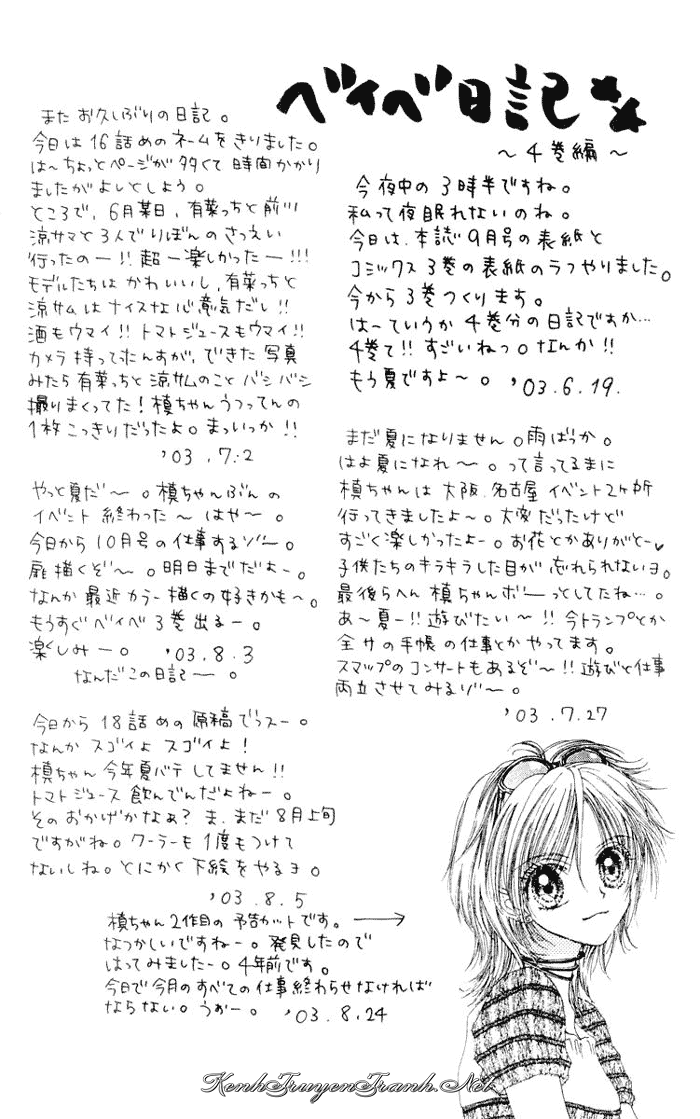 ベイベ日記
～4巻編～
今夜中の3時半ですね。
私って夜眠れないのね。
今日は、本誌9月号の表紙と
コミックス3巻の表紙のラフやりました。
今から3巻つくります。
は～ていうか4巻分の日記ですか…
4巻て!!すごいねっ。なんか!!
もう夏ですよ～。'03.6.19.
まだ夏になりません。雨ばっか。
はよ夏になれ～。って言ってるまに
槙ちゃんは大阪、名古屋イベント2ヶ所
行ってきましたよ～。大変だったけど
すごく楽しかったよー。お花とかありがと～♥
子供たちのキラキラした目が忘れられないヨ。
最後らへん槙ちゃんボーっとしてたね…。
あ～夏ー!!遊びたい～!!今トランプとか
全サの手帳の仕事とかやってます。
スマップのコンサートもあるぞ～!!遊びと仕事
両立させてみるゾ～。
'03.7.27
またお久しぶりの日記。
今日は16話めのネームをきりました。
は～ちょっとページが多くて時間かかり
ましたがよしとしよう。
ところで、6月某日、有菜っちと前川
涼サマと3人でりぼんのさつえい
行ったのー!!超ー楽しかったー!!!
モデルたちはかわいいし、有菜っちと
涼サムはナイスな心意気だし!!
酒もウマイ!!トマトジュースもウマイ!!
カメラ持ってたんすが、できた写真
みたら有菜っちと涼サムのことバシバシ
撮りまくってた!槙ちゃんうつってんの
1枚こっきりだったよ。まっいっか!!
'03.7.2
やっと夏だ～。槙ちゃんぶんの
イベント終わった～はや～。
今日から10月号の仕事するゾ～。
扉描くぞ～。明日までだよー。
なんか最近カラー描くの好きかも～。
もうすぐベイベ3巻出るー。
楽しみー。'03.8.3
なんだこの日記ー。
今日から18話めの原稿でっスー。
なんかスゴイよスゴイよ!
槙ちゃん今年夏バテしてません!!
トマトジュース飲んでんだよねー。
そのおかげかなぁ?ま、まだ8月上旬
ですがね。クーラーも1度もつけて
ないしね。とにかく下絵をやるヨ。
'03.8.5
槙ちゃん2作目の予告カットです。→
なつかしいですねー。発見したので
はってみましたー。4年前です。
今日で今月のすべての仕事終わらせなければ
ならない。うおー。'03.8.24
KenhTruyenTranh.Net